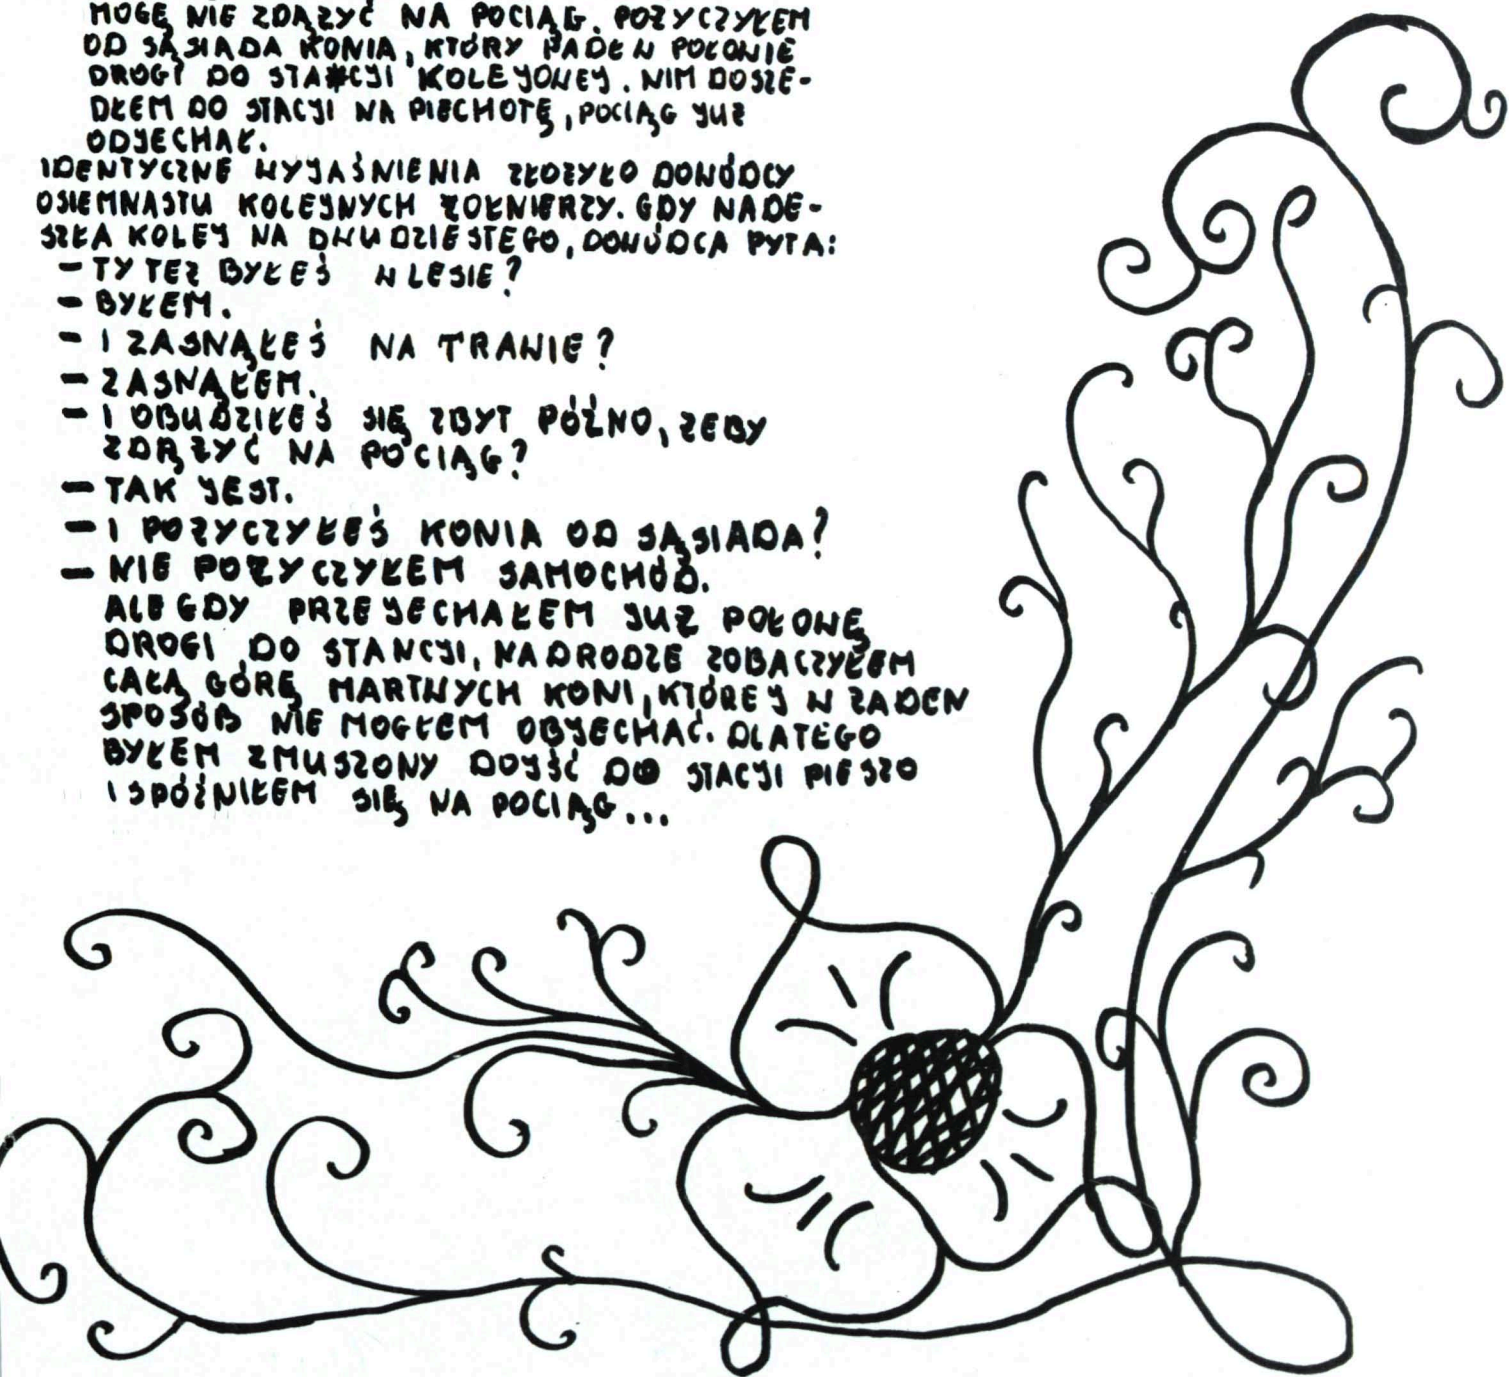 MOGĘ NIE ZDĄŻYĆ NA POCIĄG. POŻYCZYŁEM
OD SĄSIADA KONIA, KTÓRY PADŁ W POŁOWIE
DROGI DO STACYI KOLEYOWEY. NIM DOSZE-
DŁEM DO STACYI NA PIECHOTĘ, POCIĄG YUŻ
ODYECHAŁ.
IDENTYCZNE WYYAŚNIENIA ZŁOŻYŁO DOWÓDCY
OSIEMNASTU KOLEYNYCH ŻOŁNIERZY. GDY NADE-
SZŁA KOLEY NA DWUDZIESTEGO, DOWÓDCA PYTA:
- TY TEŻ BYŁEŚ W LESIE?
- BYŁEM.
- I ZASNĄŁEŚ NA TRAWIE?
- ZASNĄŁEM.
- I OBUDZIŁEŚ SIĘ ZBYT PÓŹNO, ŻEBY
ZDĄŻYĆ NA POCIĄG?
- TAK YEST.
- I POŻYCZYŁEŚ KONIA OD SĄSIADA?
- NIE POŻYCZYŁEM SAMOCHÓD.
ALE GDY PRZEYECHAŁEM YUŻ POŁOWĘ
DROGI DO STANCYI, NA DRODZE ZOBACZYŁEM
CAŁĄ GÓRĘ MARTWYCH KONI, KTÓREY W ŻADEN
SPOSÓB NIE MOGŁEM OBYECHAĆ. DLATEGO
BYŁEM ZMUSZONY DOYŚĆ DO STACYI PIESZO
I SPÓŹNIŁEM SIĘ NA POCIĄG...